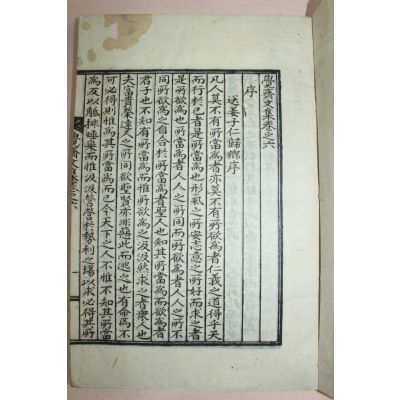 覺齋文集卷之六
序
送姜子仁歸鄉序
凡人莫不有所當為亦莫不有所欲為者仁義之道得乎天
而行於己者是所當為也形氣之所安志意之所好而求之者
是所欲為也所當為者人人之所同而所欲為者人人之所不
同所欲為之自合所當為者君子也知其所當為而欲為者
君子也不知所當為而惟所欲為之汲汲然求之者衆人也
夫富貴榮達人之所同欲聖賢亦非惡此而逃之也有命焉不
可必得則惟為其所當為而已今天下之人不惟不知其所當
為及以觝排唾棄而惟汲汲營營於勢利之場以求必得其所